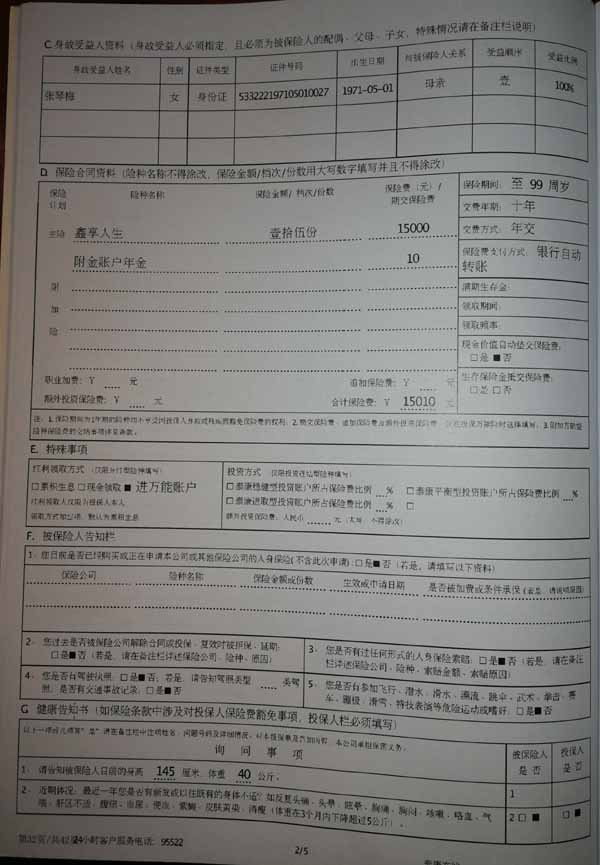 C.身故受益人资料（身故受益人必须指定，且必须为被保险人的配偶、父母、子女，特殊情况请在备注栏说明）
身故受益人姓名 性别 证件类型 证件号码 出生日期 与被保险人关系 受益顺序 受益比例
张琴梅 女 身份证 533222197105010027 1971-05-01 母亲 壹 100%
D. 保险合同资料（险种名称不得涂改，保险金额/档次/份数用大写数字填写并且不得涂改）
保险计划 险种名称 保险金额/档次/份数 保险费（元）/期交保险费 保险期间： 至 99 周岁
交费年期： 十年
主险 鑫享人生 壹拾伍份 15000 交费方式： 年交
附金账户年金 10 保险费支付方式： 银行自动转账
附加险
满期生存金：
领取期间：
领取频率：
现金价值自动垫交保险费：
□是 ■否
职业加费：￥ 元 追加保险费：￥ 元 生存保险金抵交保险费：
额外投资保险费：￥ 元 合计保险费：￥ 15010 元 □是 □否
E. 特殊事项
红利领取方式（仅限分红型险种填写） 投资方式（仅限投资连结型险种填写）
□累积生息 □现金领取 ■ 进万能账户 □泰康稳健型投资账户所占保险费比例 % □泰康平衡型投资账户所占保险费比例 %
红利领取人仅限为投保人本人 □泰康进取型投资账户所占保险费比例 % □
领取方式如空项，默认为累积生息 额外投资保险费：人民币 元（大写，不得涂改）
F. 被保险人告知栏
1、您目前是否已经购买或正在申请本公司或其他保险公司的人身保险(不含此次申请)：□是■否（若是，请填写以下资料）
保险公司 险种名称 保险金额或份数 生效或申请日期 是否被加费或条件承保（若是，请说明原因）
2、您过去是否被保险公司解除合同或投保、复效时被拒保、延期：
□是■否（若是，请在备注栏详述保险公司、险种、原因）
3、您是否有过任何形式的人身保险索赔：□是■否（若是，请在备注栏详述保险公司、险种、索赔金额、索赔原因）
4、您是否有驾驶执照：□是■否；若是，请告知驾照类型 类驾照，是否有交通事故记录：□是■否
5、您是否有参加飞行、潜水、滑水、漂流、跳伞、武术、拳击、赛车、蹦极、滑雪、特技表演等危险运动或嗜好：□是■否
G 健康告知书（如保险条款中涉及对投保人保险费豁免事项，投保人栏必须填写）
询 问 事 项 被保险人 是 否 投保人 是 否
1、请告知被保险人目前的身高 145 厘米，体重 40 公斤。 1
2、近期体况：最近一年您是否有新发或以往既有的身体不适？如反复头痛、头晕、眩晕、胸痛、胸闷、咳嗽、咯血、气喘、肝区不适、腹痛、血尿、便血、紫癜、皮肤黄染、消瘦（体重在3个月内下降超过5公斤）。 2 □ ■ □ ■
第32页/共42页 24小时客户服务电话：95522
2/5